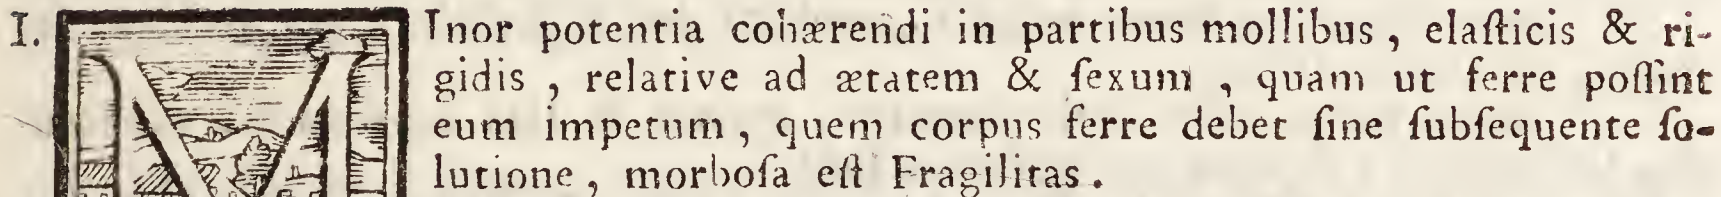 I. MInor potentia cohærendi in partibus mollibus, elaſticis & ri-
gidis, relative ad ætatem & ſexum, quam ut ferre poſſint
eum impetum, quem corpus ferre debet ſine ſubſequente ſo-
lutione, morboſa eſt Fragilitas.